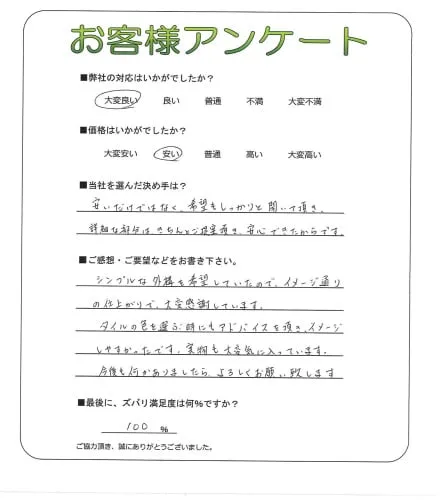 お客様アンケート
■弊社の対応はいかがでしたか？
大変良い 良い 普通 不満 大変不満
■価格はいかがでしたか？
大変安い 安い 普通 高い 大変高い
■当社を選んだ決め手は？
安いだけではなく、希望もしっかりと聞いて頂き、
詳細な部分は きちんとご提案頂き、安心できたからです。
■ご感想・ご要望などをお書き下さい。
シンプルな外構を希望していたので、イメージ通り
の仕上がりで、大変感謝しています。
タイルの色を選ぶ時にもアドバイスを頂き、イメージ
しやすかったです。実物も大変気に入っています。
今後も何かありましたら、よろしくお願い致します
■最後に、ズバリ満足度は何％ですか？
100 ％
ご協力頂き、誠にありがとうございました。